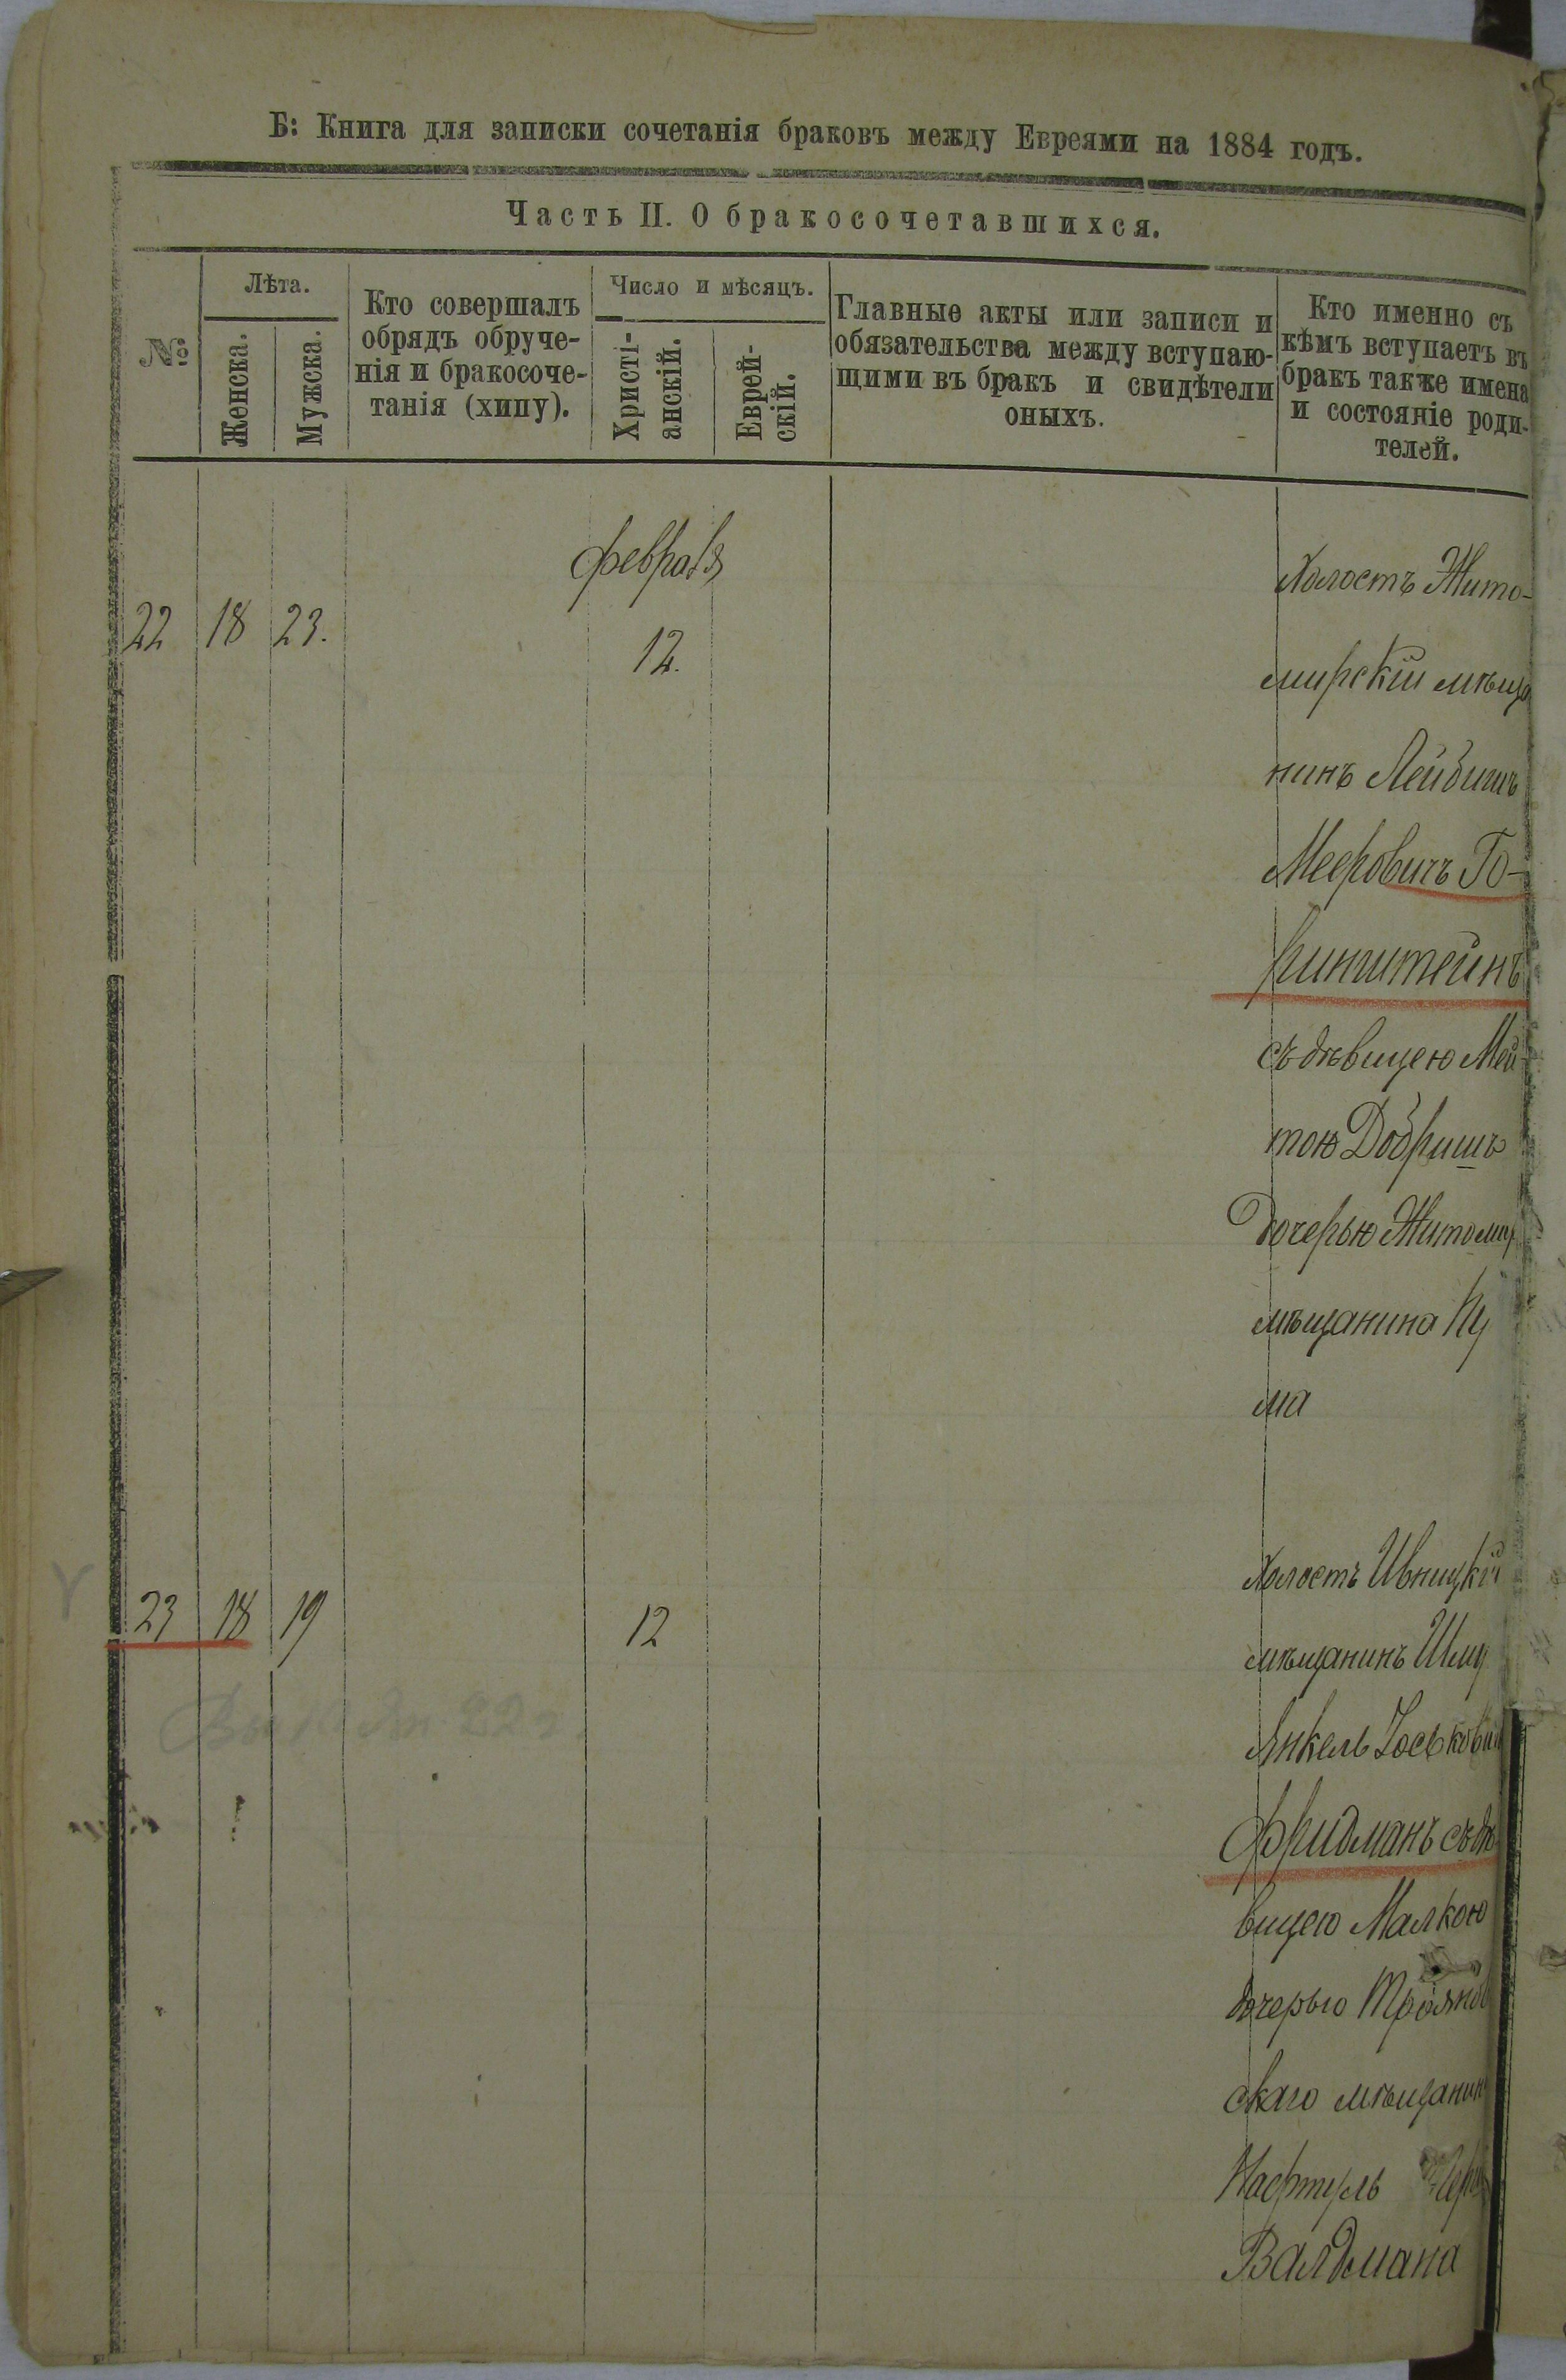 Б: Книга для записки сочетанія браковъ между Евреями на 1884 годъ.
Часть II. О бракосочетавшихся.
№
Лѣта.
Женска.
Мужска.
Кто совершалъ
обрядъ обруче-
нія и бракосоче-
танія (хипу).
Число и мѣсяцъ.
Христі-
анскій.
Еврей-
скій.
Главные акты или записи и
обязательства между вступаю-
щими въ бракъ и свидѣтели
оныхъ.
Кто именно съ
кѣмъ вступаетъ въ
бракъ также имена
и состояніе роди-
телей.
февраля
22 18 23. 12.
Холостъ Жито-
мирскій мѣща
нинъ Лейбишъ
Мееровичъ Го-
ринштейнъ
съ дѣвицею Мей
тою Добришъ
Дочерью Житомир
мѣщанина Ну
ма
23 18 19 12
Холостъ Ивницкій
мѣщанинъ Шму
Янкель Іоськович
Фридманъ съ дѣ
вицею Малкою
дочерью Троянов
скаго мѣщанин
Нафтуль
Валдмана